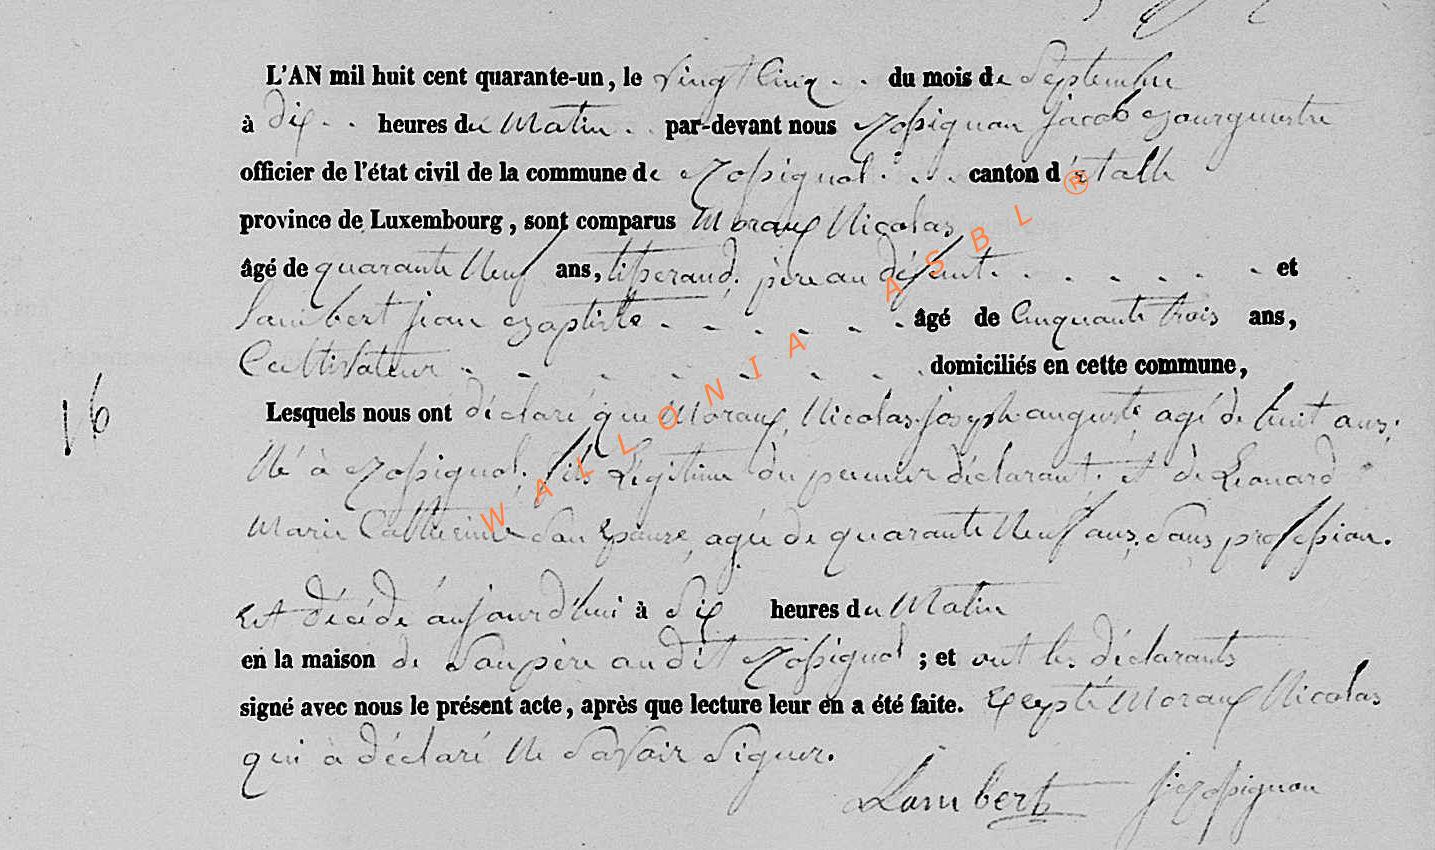 L'AN mil huit cent quarante-un, le vingt Cinq . . du mois de Septembre
à dix . . heures du Matin . . par-devant nous Rossignon Jacob Bourguestre
officier de l'état civil de la commune de Rossignol . . . canton d'étalle
province de Luxembourg, sont comparus Moraux Nicolas
âgé de quarante Neuf ans, tisserand, père au défunt . . . . . . et
Lambert jean Baptiste . . . . . . âgé de Cinquante trois ans,
Cultivateur . . . . . . . . domiciliés en cette commune,
16
Lesquels nous ont déclaré que Moraux, Nicolas Joseph auguste, agé de huit ans,
Né à Rossignol, fils Légitime du premier déclarant, et de Léonard
Marie Catherine Son Epouse, agée de quarante Neuf ans, Sans profession.
Est décédé aujourd'hui à Six heures du Matin
en la maison de Son père au dit Rossignol ; et ont les déclarants
signé avec nous le présent acte, après que lecture leur en a été faite. Exepté Moraux Nicolas
qui à déclaré Ne Savoir Signer.
Lambert J. Rossignon
WALLONIA ASBL ®